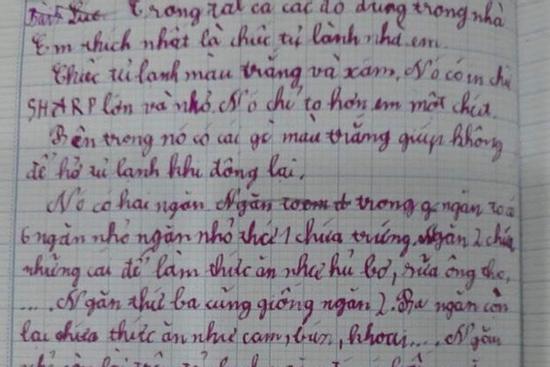 Bài làm Trong tất cả các đồ dùng trong nhà
Em thích nhất là chiếc tủ lành nhà em.
Chiếc tủ lanh màu trắng và xám. Nó có in chữ
SHARP lớn và nhỏ. Nó chỉ to hơn em một chút.
Bên trong nó có cái gờ màu trắng giúp không
để hở tủ lạnh khi đông lại.
Nó có hai ngăn. trong ngăn
6 ngăn nhỏ ngăn nhỏ thứ 1 chứa trứng. Ngăn 2 chứa
những cái để làm thức ăn như hủ bơ, sữa ông thọ,
.... Ngăn thứ ba cũng giống ngăn 2. Ba ngăn còn
lại chứa thức ăn như cam, bún, khoai.... Ngăn